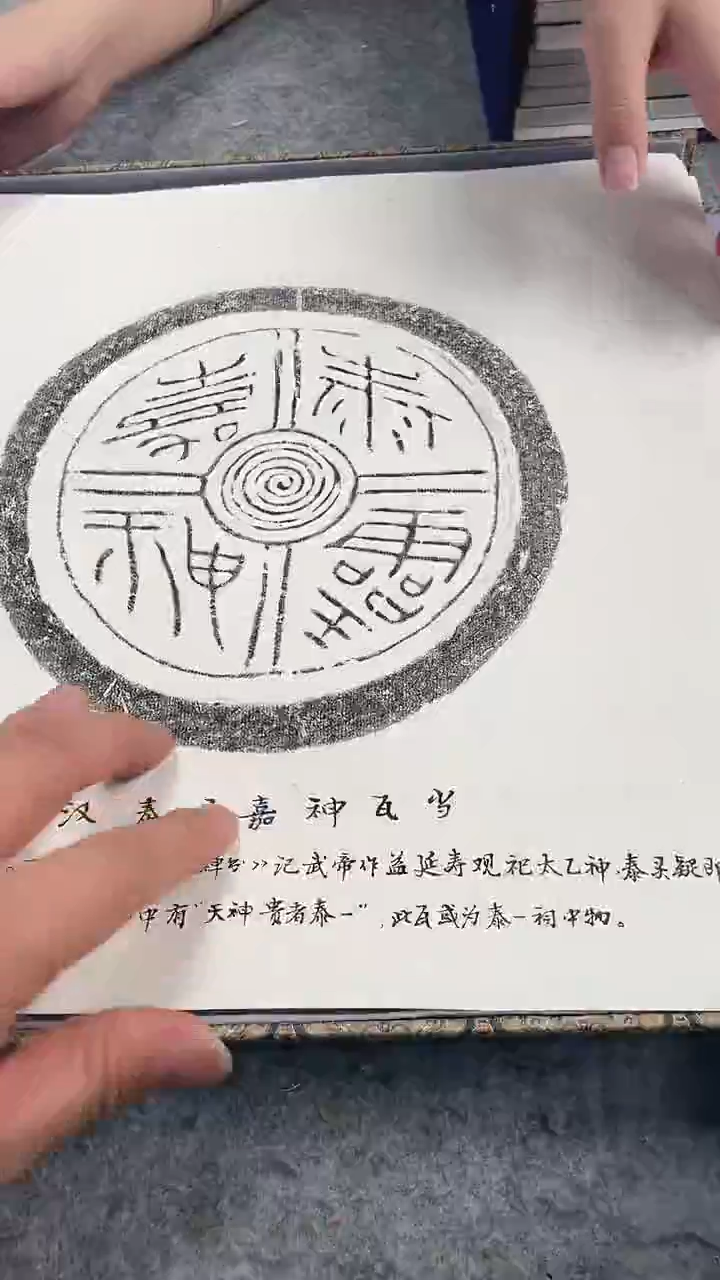 泰靈
嘉神
汉 泰 嘉 神 瓦 当
》记武帝作益延寿观祀太乙神,泰灵疑即
中有“天神贵者泰一”,此瓦或为泰一祠中物。